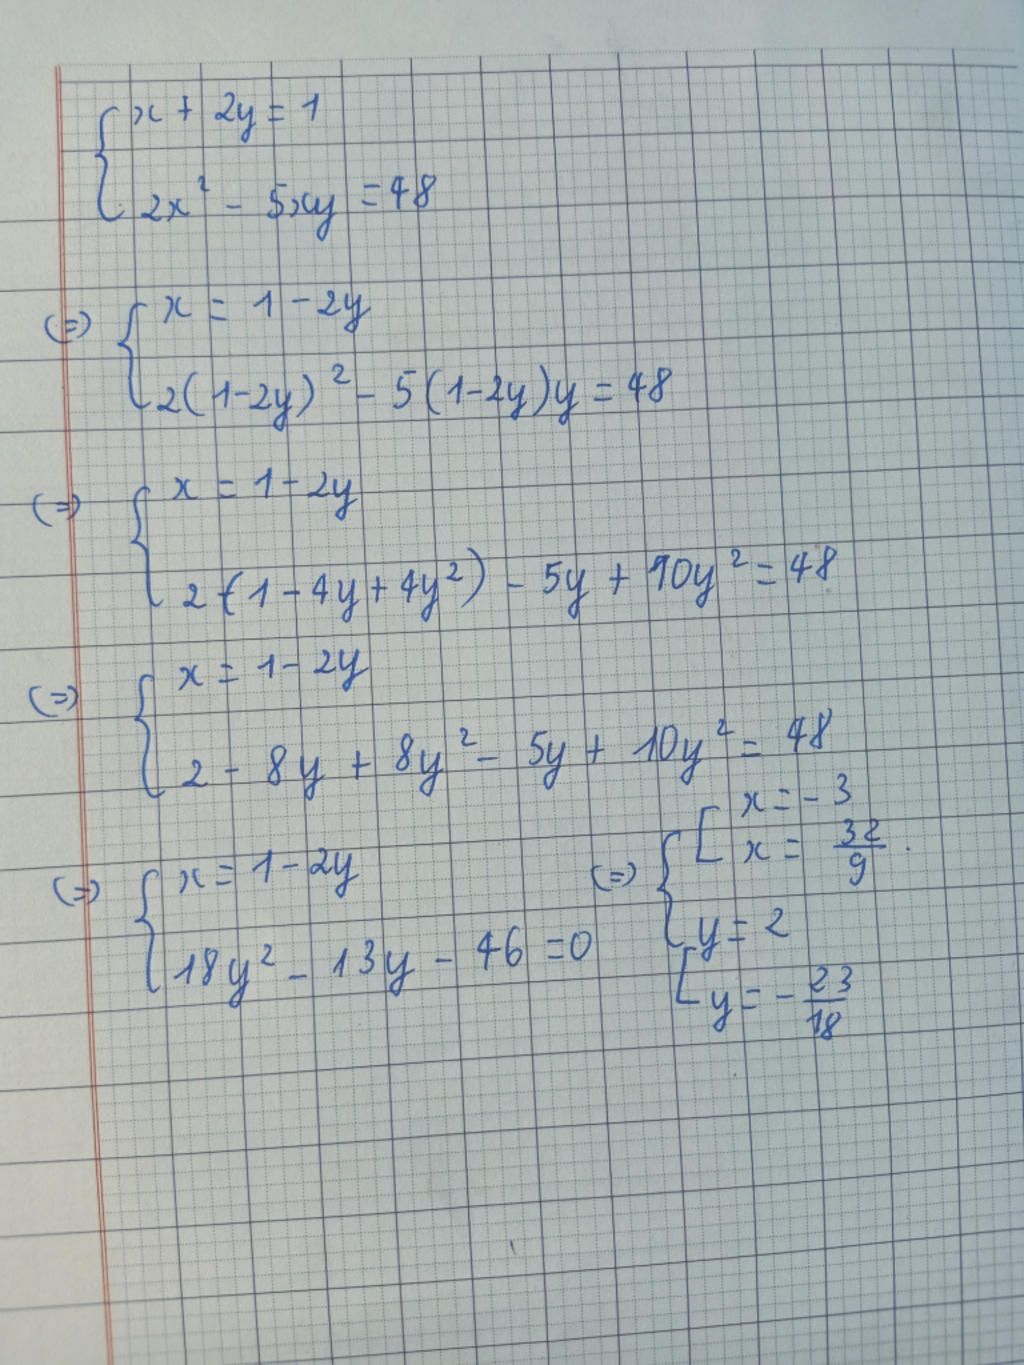 x + 2y = 1
2x² - 5xy = 48
(=) x = 1 - 2y
2(1-2y)² - 5(1-2y)y = 48
(=) x = 1 - 2y
2(1 - 4y + 4y²) - 5y + 10y² = 48
(=) x = 1 - 2y
2 - 8y + 8y² - 5y + 10y² = 48
(=) x = 1 - 2y
18y² - 13y - 46 = 0
(=) x = - 3
x = 32/9 .
y = 2
y = - 23/18